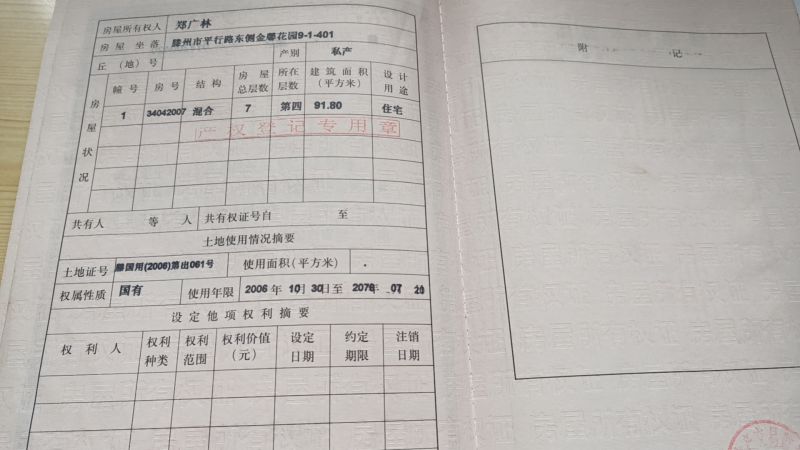 房屋所有权人 郑广林
房屋坐落 滕州市平行路东侧金馨花园9-1-401
丘（地）号 产别 私产
房屋状况 幢号 房号 结构 房屋总层数 所在层数 建筑面积（平方米） 设计用途
1 34042007 混合 7 第四 91.80 住宅
产权登记专用章
共有人 等 人 共有权证号自 至
土地使用情况摘要
土地证号 滕国用(2006)第出061号 使用面积(平方米)
权属性质 国有 使用年限 2006年10月30日至 2076年 07
设定他项权利摘要
权利人 权利种类 权利范围 权利价值（元） 设定日期 约定期限 注销日期
附 记